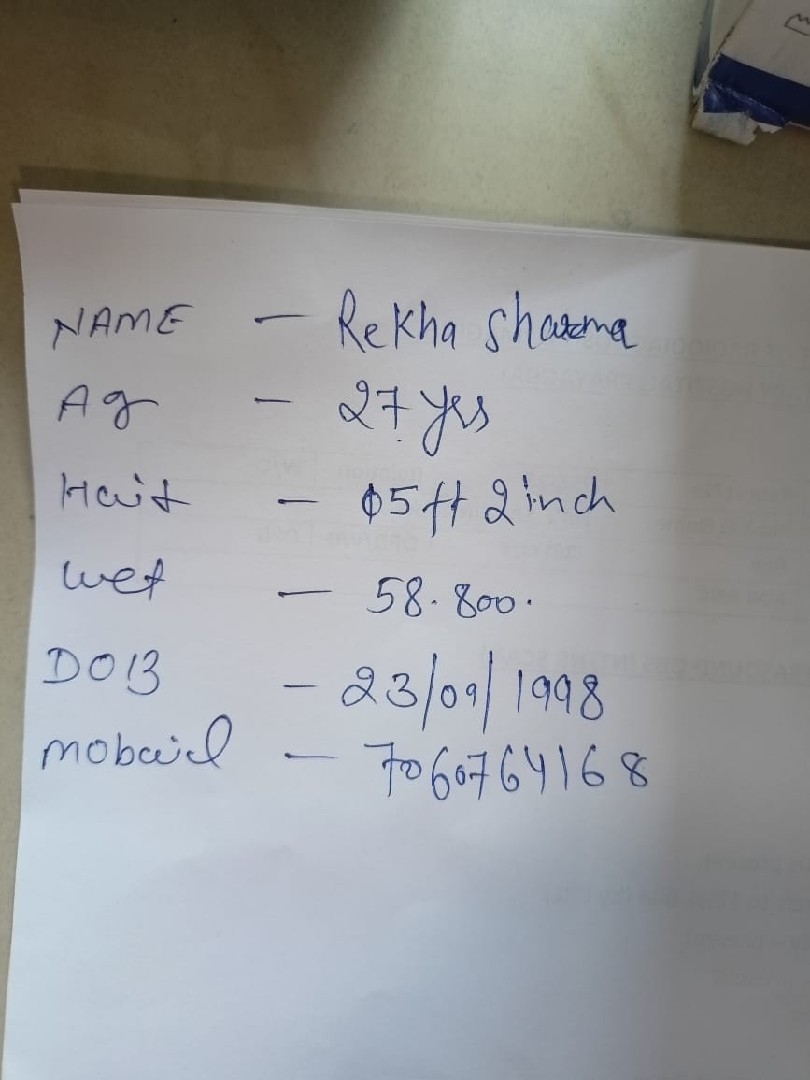 NAME - Rekha Sharma
Ag - 27 yrs
Hait - 05 ft 2 inch
wet - 58.800.
DOB - 23/09/1998
mobail - 7060764168